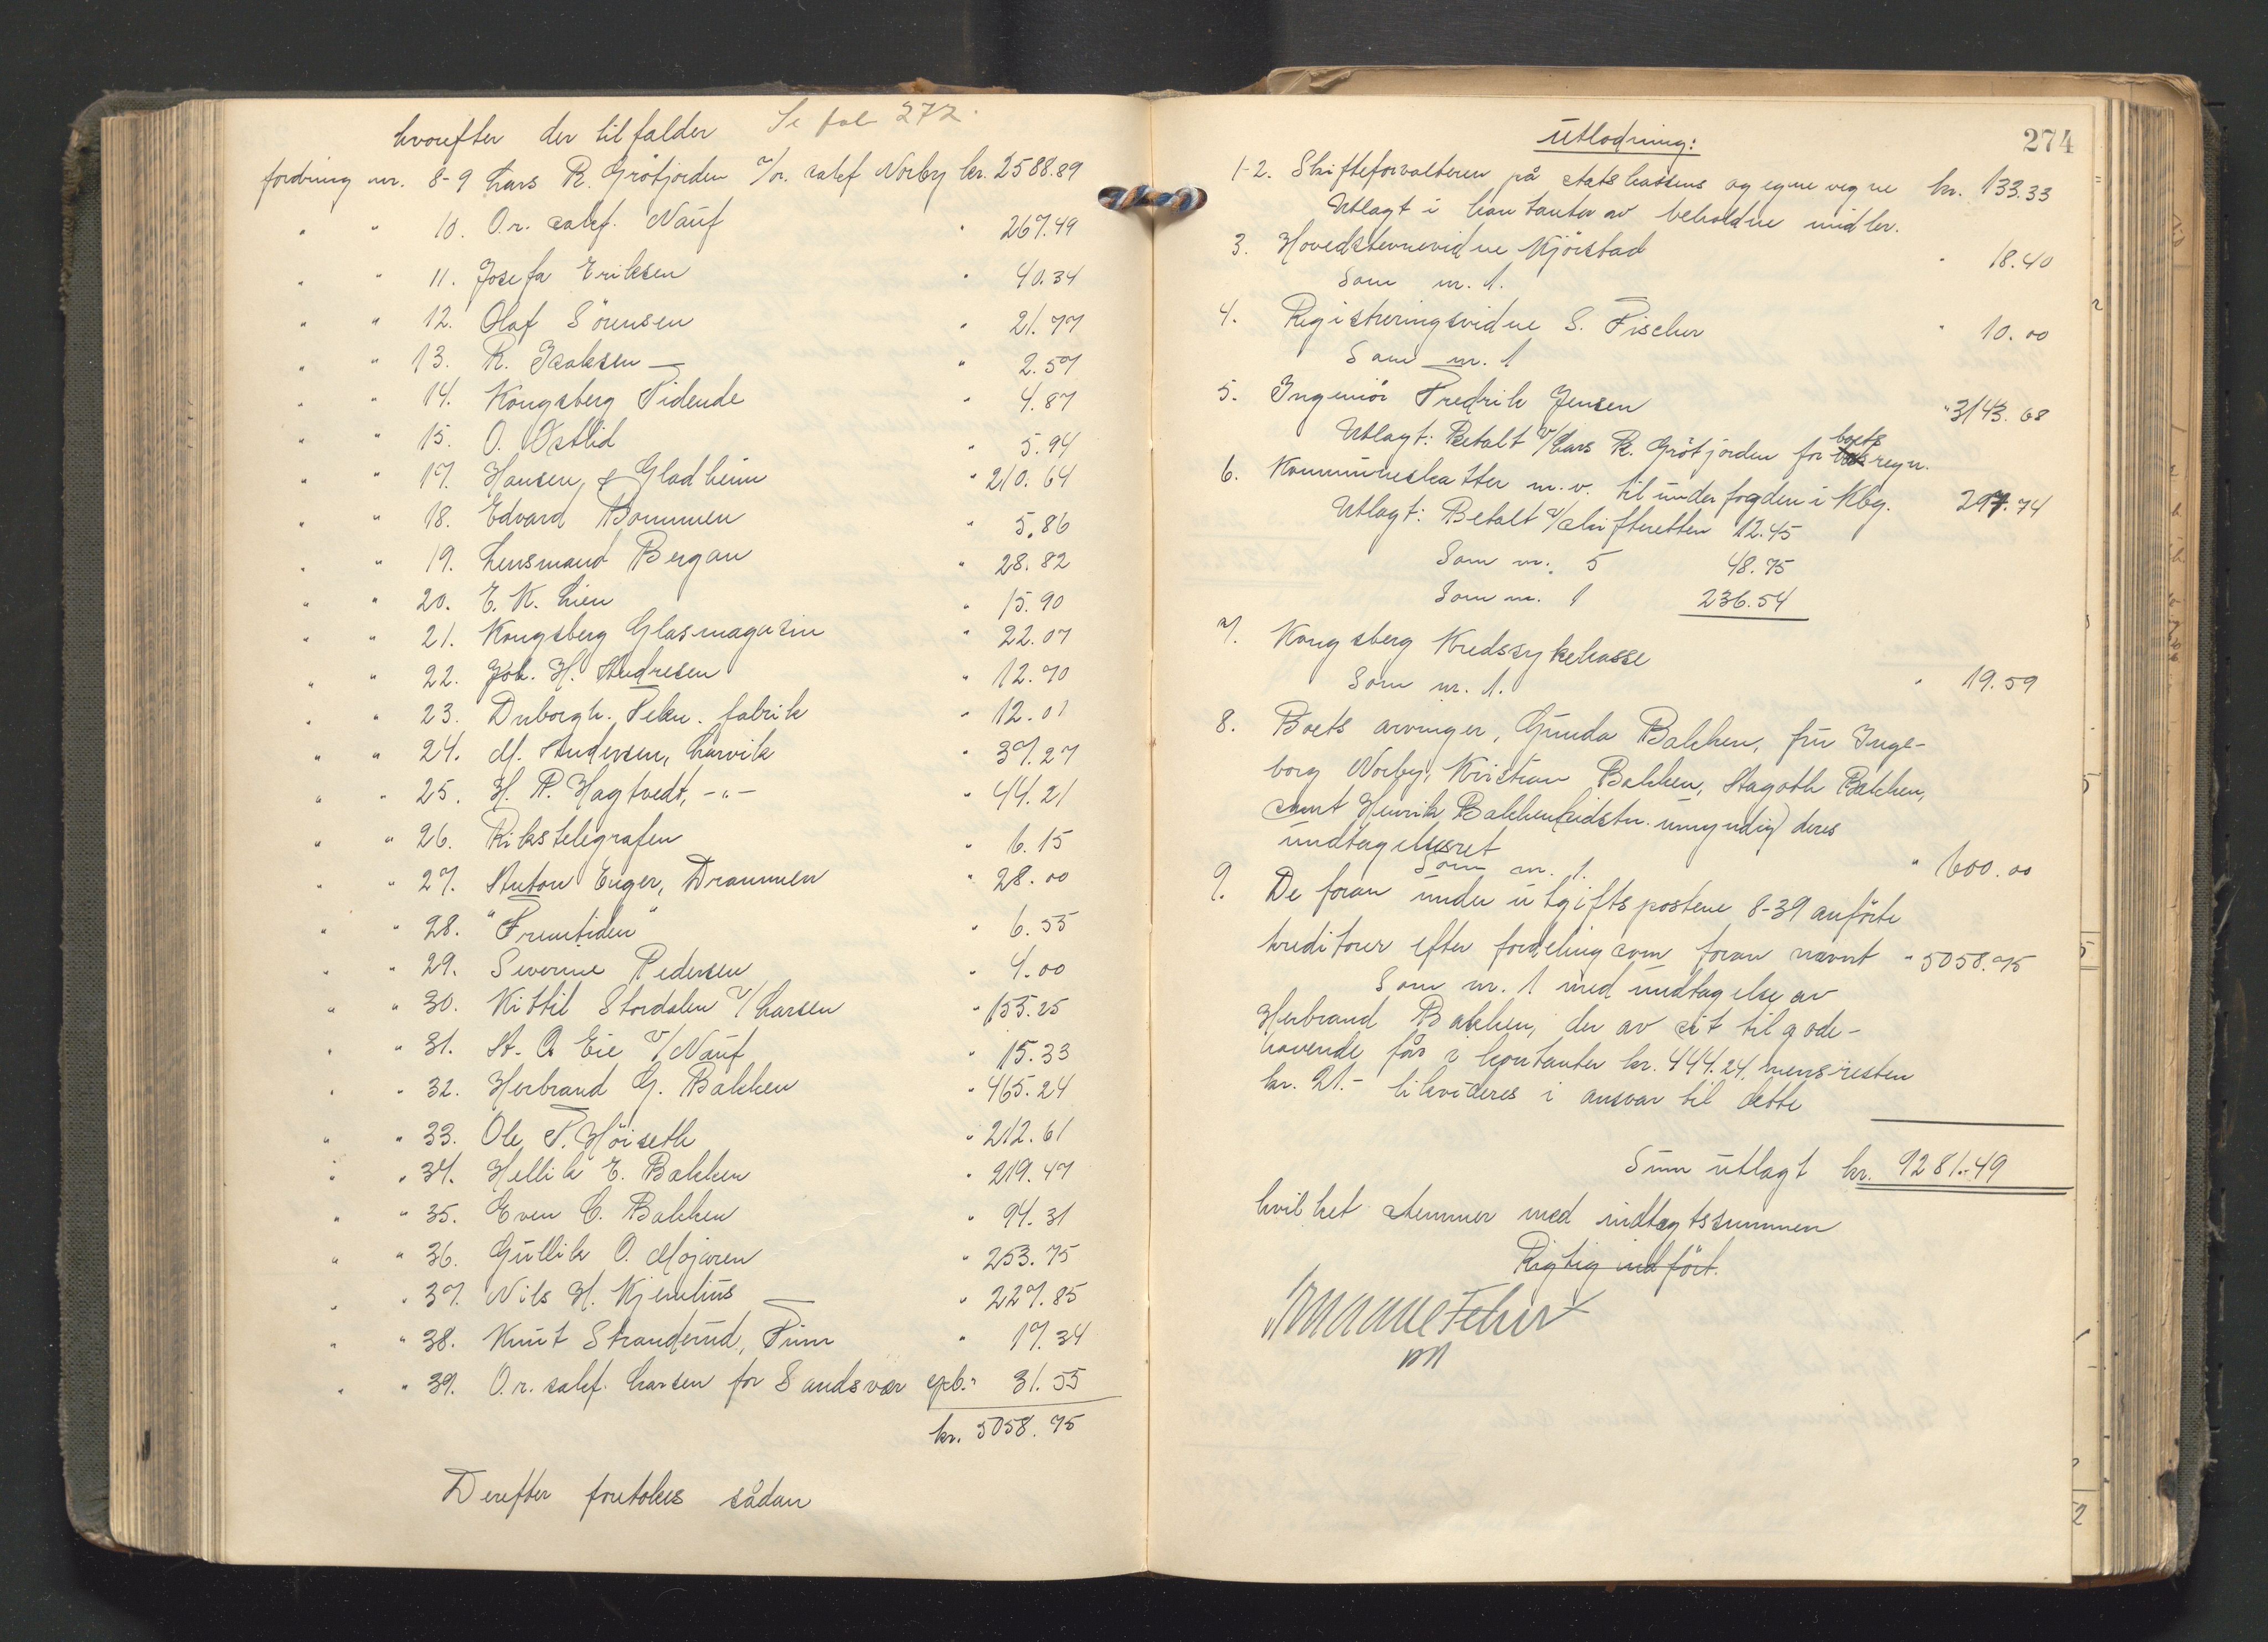 hvorefter der tilfalder Se fol 272.
fordring nr. 8-9 Lars R. Grötjorden v/o.r. sakf Norby kr. 2588.89
" " 10. O.r. sakf. Nauf " 267.49
" " 11. Josefa Eriksen " 40.34
" " 12. Olaf Sörensen " 21.77
" " 13. R. Isaksen — " 2.57
" " 14. Kongsberg Tidende " 4.87
" " 15. O. Østlid " 5.94
" " 17. Hansen & Gladheim " 210.64
" " 18. Edvard Bommen " 5.86
" " 19. Lensmand Bergan " 28.82
" " 20. E. K. Lien " 15.90
" " 21. Kongsberg Glasmagasin " 22.07
" " 22. Joh. H. Andresen " 12.70
" " 23. Duborgh. Tekn. fabrik " 12.01
" " 24. M. Andersen, Larvik " 37.27
" " 25. H. P. Hagtvedt, -"- " 44.21
" " 26. Rikstelegrafen " 6.15
" " 27. Anton Enger, Drammen " 28.00
" " 28. "Fremtiden" " 6.55
" " 29. Severine Pedersen " 4.00
" " 30. Kittil Stordalen v/Larsen " 155.25
" " 31. A. O. Eie v/Nauf " 15.33
" " 32. Herbrand G. Bakken " 465.24
" " 33. Ole T. Höiseth " 212.61
" " 34. Hellik E. Bakken " 219.47
" " 35. Even C. Bakken " 94.31
" " 36. Gullik O. Mojaren " 253.75
" " 37. Nils H. Kjemhus " 227.85
" " 38. Knut Stranderud, Tinn " 17.34
" " 39. O.r. sakf. Larsen for Sandsvær spb. " 31.55
kr. 5058.75
Derefter foretokes sådan
274
Utlodning:
1-2. Skifteforvalteren på statskassens og egne vegne kr. 133.33
Utlagt i kontanter av beholdne midler.
3. Hovedstevnevidne Kjörstad " 18.40
Som nr. 1.
4. Registreringsvidne S. Fischer " 10.00
Som nr. 1
5. Ingeniör Fredrik Jensen " 3143.68
Utlagt: Betalt v/Lars R. Grötjorden for boets regn.
6. Kommuneskatter m.v. til underfogden i Kbg. 297.74
Utlagt: Betalt v/skifteretten 12.45
Som nr. 5 48.75
Som nr. 1 236.54
7. Kongsberg Kredssykekasse " 19.59
Som nr. 1.
8. Boets arvinger, Gunda Bakken, fru Inge-
borg Norby, Kristian Bakken, Aagoth Bakken,
samt Henrik Bakken (sidstn. umyndig) deres
undtagelsesret " 600.00
Som nr. 1.
9. De foran under utgiftspostene 8-39 anförte
kreditorer efter fordeling som foran nævnt " 5058.75
Som nr. 1 med undtagelse av
Herbrand Bakken, der av sit tilgode-
havende får i kontanter kr. 444.24, mens resten
kr. 21.- likvideres i ansvar til dette
Sum utlagt kr. 9281.49
hvilket stemmer med indtægtssummen
Rigtig indfört.